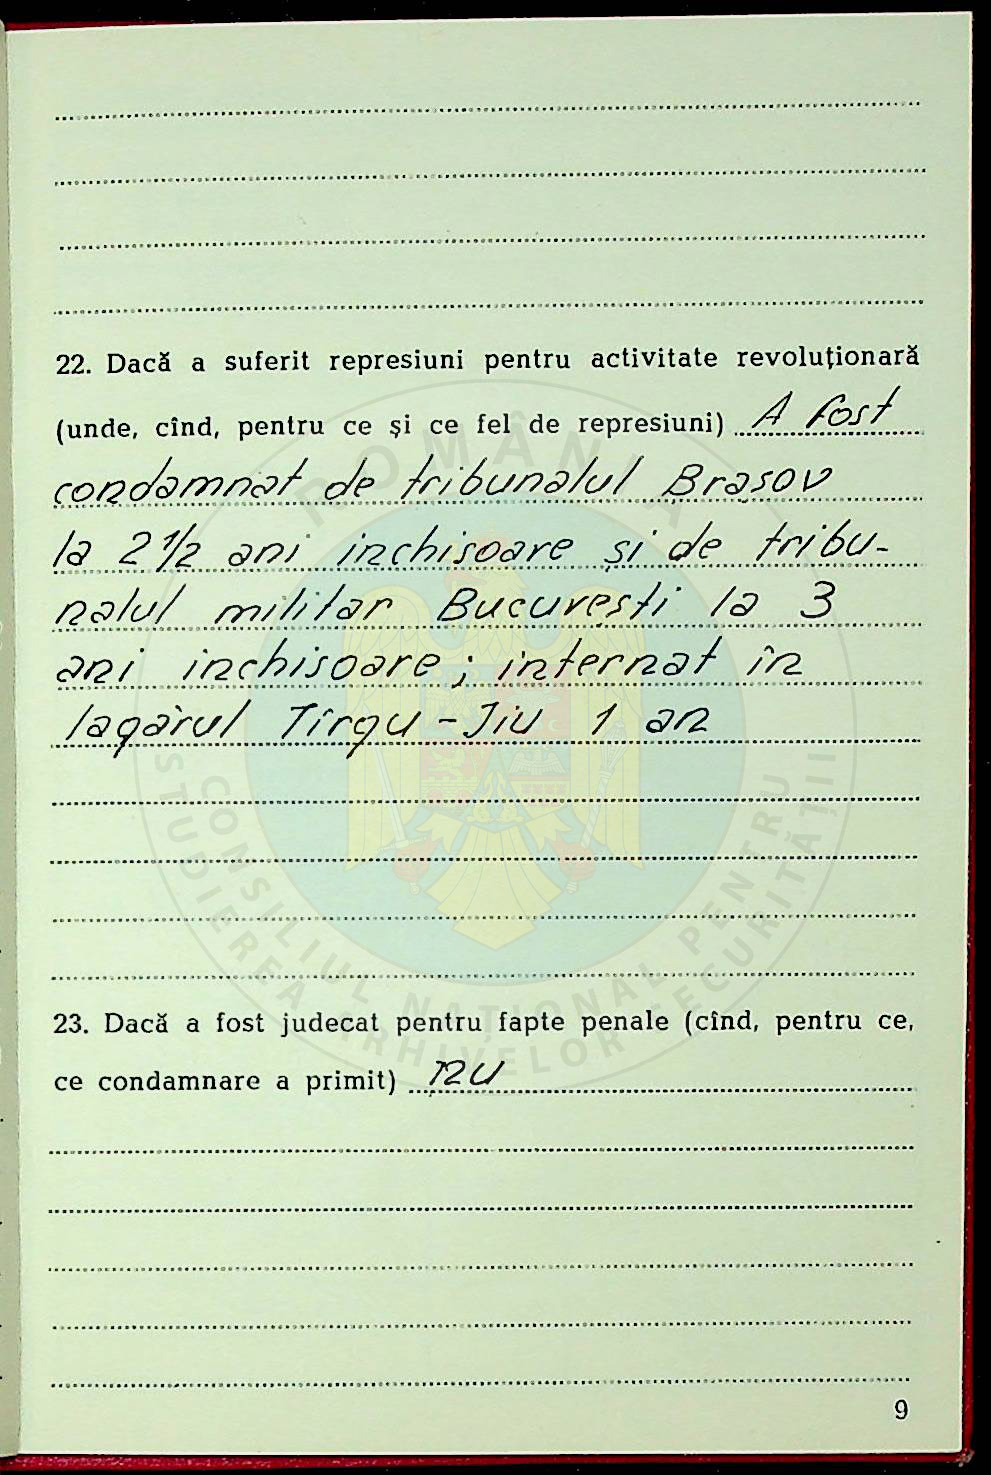 22. Dacă a suferit represiuni pentru activitate revoluționară
(unde, cînd, pentru ce și ce fel de represiuni) A fost
condamnat de tribunalul Brașov
la 2 1/2 ani inchisoare și de tribu-
nalul militar București la 3
ani inchisoare; internat în
lagărul Tîrgu-Jiu 1 an
ROMÂNIA
CONSILIUL NAȚIONAL PENTRU
STUDIEREA ARHIVELOR SECURITĂȚII
23. Dacă a fost judecat pentru fapte penale (cînd, pentru ce,
ce condamnare a primit) nu
9